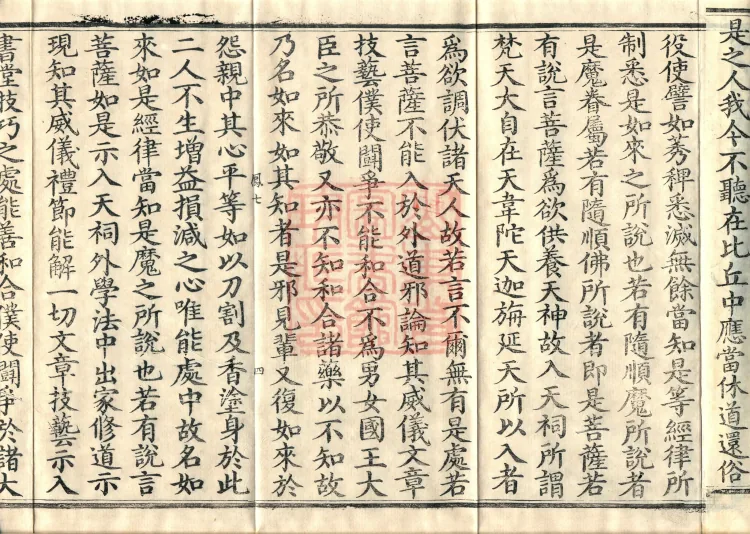 是之人我今不聽在比丘中應當休道還俗
役使譬如莠稗悉滅無餘當知是等經律所
制悉是如來之所說也若有隨順魔所說者
是魔眷屬若有隨順佛所說者即是菩薩若
有說言菩薩為欲供養天神故入天祠所謂
梵天大自在天韋陀天迦旃延天所以入者
為欲調伏諸天人故若言不爾無有是處若
言菩薩不能入於外道邪論知其威儀文章
技藝僕使鬪爭不能和合不為男女國王大
臣之所恭敬又亦不知和合諸藥以不知故
乃名如來如其知者是邪見輩又復如來於
鳳七 四
怨親中其心平等如以刀割及香塗身於此
二人不生增益損減之心唯能處中故名如
來如是經律當知是魔之所說也若有說言
菩薩如是示入天祠外學法中出家修道示
現知其威儀禮節能解一切文章技藝示入
書堂技巧之處能善和合僕使鬪爭於諸大